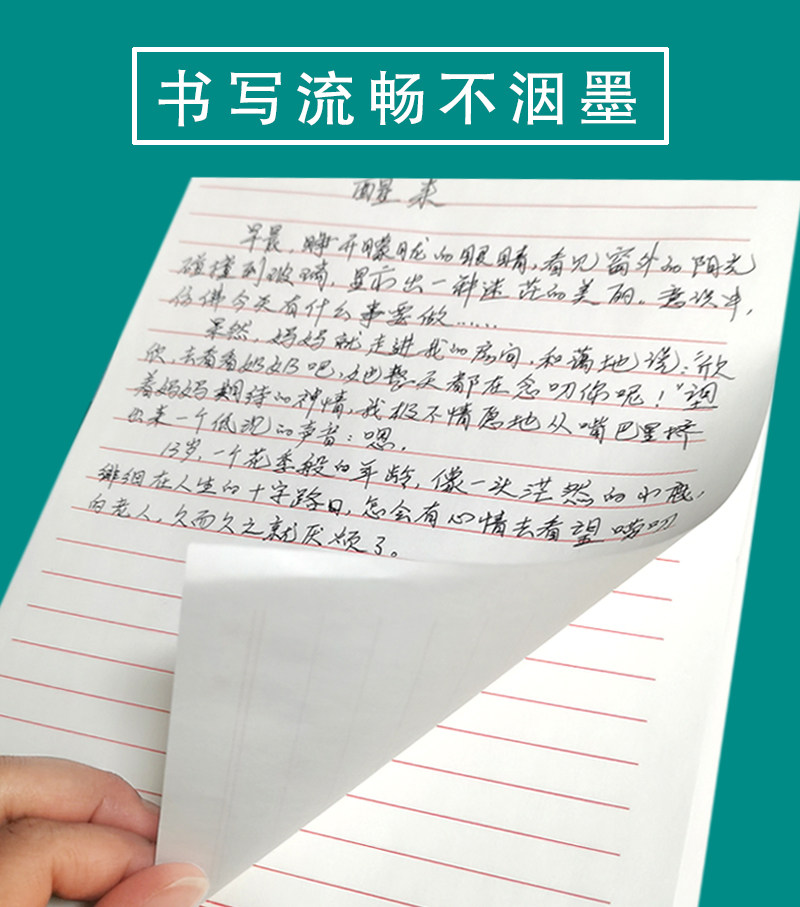 书写流畅不洇墨
醒来
早晨，睁开朦胧的眼睛，看见窗外的阳光
碰撞到玻璃，显示出一种迷茫的美丽。意识中，
仿佛今天有什么事要做……
果然，妈妈就走进我的房间，和蔼地说：“欣
欣，去看看奶奶吧，她整天都在念叨你呢！”望
着妈妈期待的神情，我极不情愿地从嘴巴里挤
出来一个低沉的声音：嗯。
13岁，一个花季般的年龄，像一头茫然的小鹿，
徘徊在人生的十字路口，怎会有心情去看望唠叨
的老人，久而久之就厌烦了。